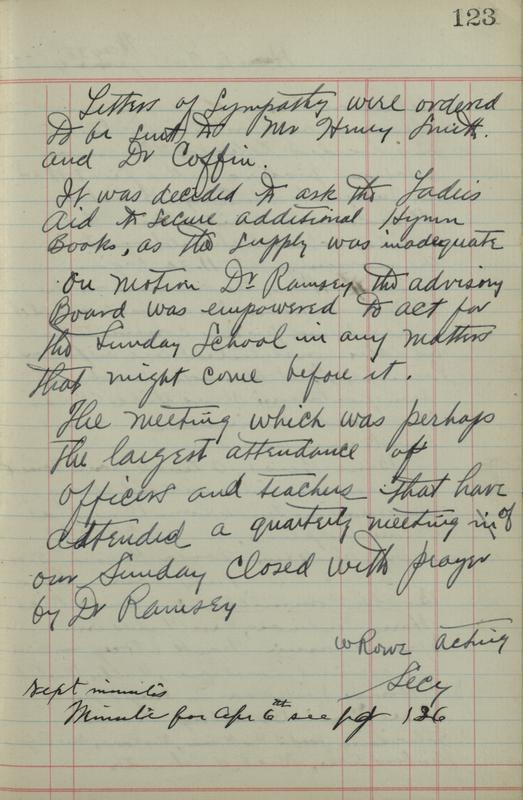 123
Letters of Sympathy were ordered
to be sent to Mr Henry Smith.
and Dr Coffin.
It was decided to ask the Ladies
Aid to secure additional Hymn
Books, as the supply was inadequate
On motion Dr Ramsey the advisory
Board was empowered to act for
the Sunday School in any matters
that might come before it.
The meeting which was perhaps
the largest attendance of
officers and teachers that have
attended a quarterly meeting in of
our Sunday closed with prayer
by Dr Ramsey
W Rowe acting
Secy
Sept minutes
Minute for Apr 6th see pg 136